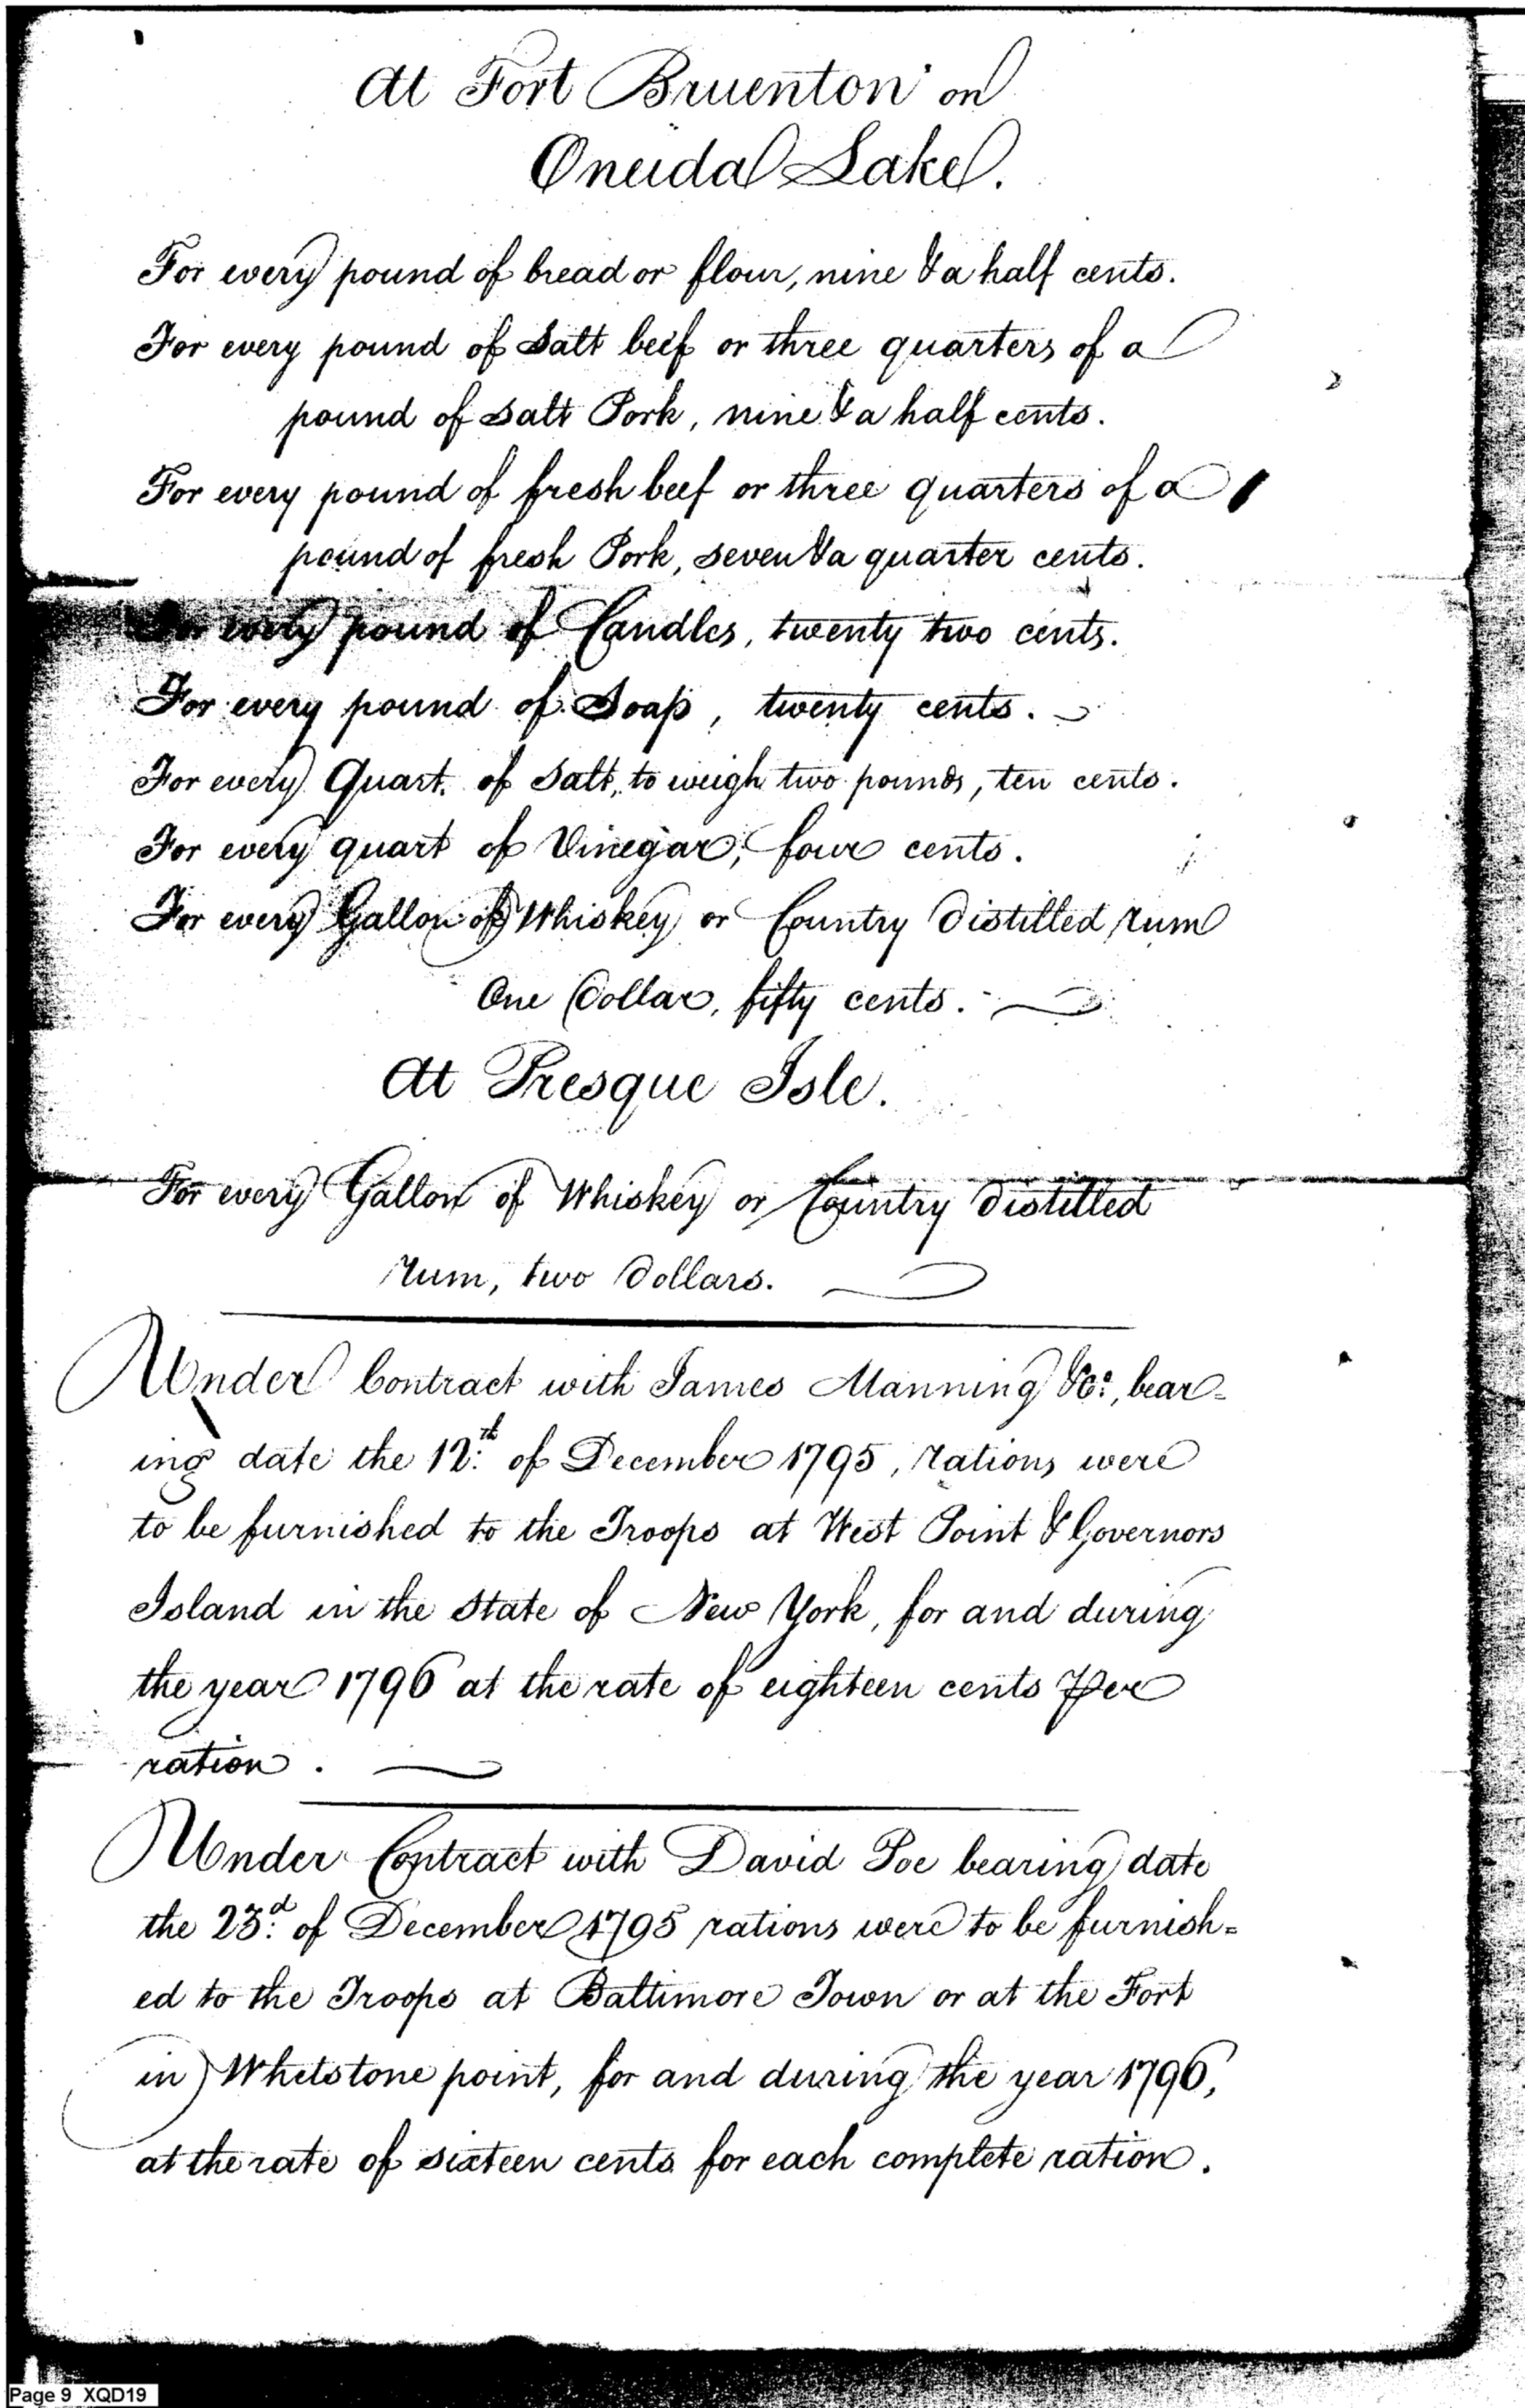 At Fort Bruenton on
Oneida Lake.
For every pound of bread or flour, nine & a half cents.
For every pound of Salt beef or three quarters of a
pound of Salt Pork, nine & a half cents.
For every pound of fresh beef or three quarters of a
pound of fresh Pork, seven & a quarter cents.
For every pound of Candles, twenty two cents.
For every pound of Soap, twenty cents.
For every Quart of Salt, to weigh two pounds, ten cents.
For every quart of Vinegar, four cents.
For every Gallon of Whiskey or Country distilled rum
One Dollar, fifty cents.
At Presque Isle.
For every Gallon of Whiskey or Country distilled
rum, two Dollars.
Under Contract with James Manning & Co:, bear-
ing date the 12th of December 1795, rations were
to be furnished to the Troops at West Point & Governors
Island in the State of New York, for and during
the year 1796 at the rate of eighteen cents Per
ration.
Under Contract with David Poe bearing date
the 23d of December 1795 rations were to be furnish=
ed to the Troops at Baltimore Town or at the Fort
in Whetstone point, for and during the year 1796,
at the rate of sixteen cents for each complete ration.
Page 9 XQD19